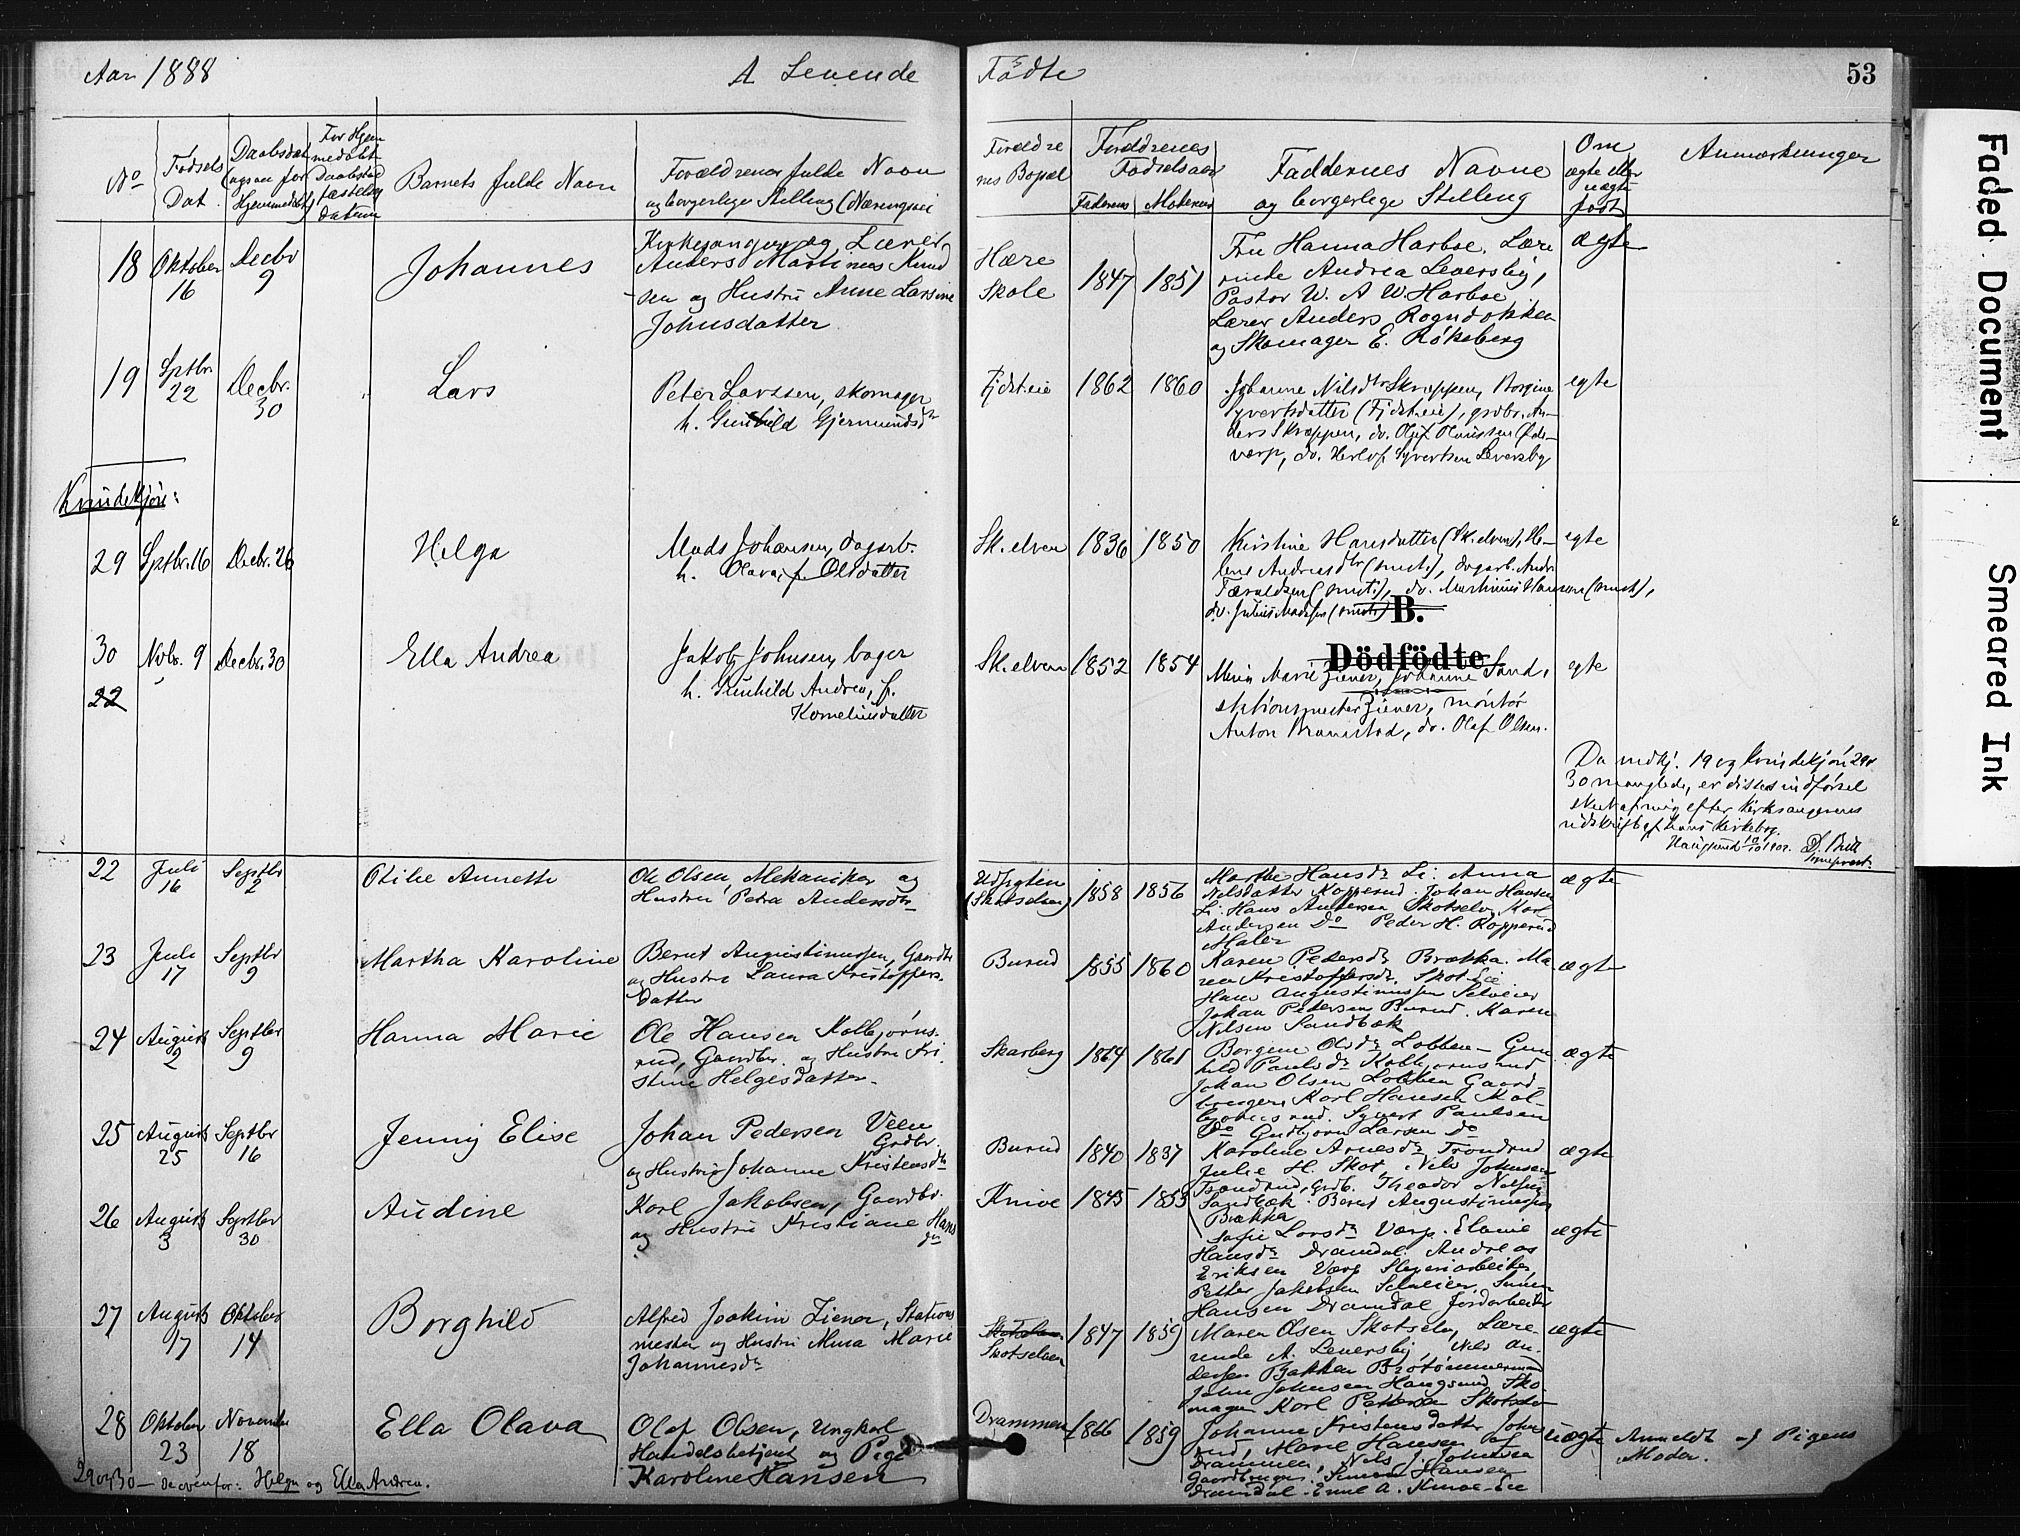 Aar 1888
A Levende
Fødte
53
No
Fødsels Dat.
Daabsdat. (ogsaa for Hjemmedøbt)
For Hjemmedøbt Daabsstad fæstelses datum
Barnets fulde Navn
Forældrenes fulde Navn
og borgerlige Stilling (Næringsvei
Forældrenes Bopæl
Forældrenes Fødselsaar
Faderens
Moderens
Faddernes Navne
og borgerlige Stilling
Om ægte eller uægte født
Anmærkninger
18 Oktober 16 Decbr 9 Johannes
Kirkesanger og Lærer
Anders Martinus Knud
sen og Hustru Anne Larsine
Johnsdatter
Hære Skole 1847 1851
Fru Hanna Harboe. Lære
rinde Andrea Leversby,
Pastor W. A W. Harboe
Lærer Anders Rogndokken
og Skomager E. Røkeberg
ægte
19 Sptbr. 22 Decbr. 30 Lars
Peter Larssen, skomager
h. Gunhild Gjermundsdr
Fjdst.eie 1862 1860
Johanne Nilsdtr Skræppen, Borgine
Syvertsdatter (Fjdst.eie), grdbr. An-
ders Skræppen, do. Olaf
værp, do. Herlof Syvertsen Leversby
egte
29 Sptbr. 16 Decbr. 26 Helga
Mads Johansen, dagarb.
h. Olava, f. Olsdatter
Sk.elven 1836 1850
Kirstine Hansdatter (Sk.elven), He-
lene Andreasdtr (smst.), dagarb. Andr.
Taraldsen (smst.), do. Martinius Hansen (smst.),
do. Julius Madssen (smst.)
egte
B.
Dödfödte
30 Novbr. 9 Decbr. 30 Ella Andrea
Jakob Johnsen, bager
h. Gunhild Andrea, f.
Korneliusdatter
22
Sk.elven 1852 1854
Mina Marie Ziener, Johanne Sand,
stationsmester Ziener, møntør
Anton Brunstad, do. Olaf Olsen.
egte
Da nedkj. 19 og Knudekjøn 29 &
30 manglede, er disses indførsel
skeet af mig efter Kirkesangerens
udskrift af hans kirkebog.
Haugsund 1902.
22 Juli 16 Septbr 2 Otilie Annette
Ole Olsen Mekaniker og
Hustru Petra Andersdtr
(Skotselven) 1858 1856
Marthe Hansdr Li. Anna
Nilsdatter Kopperud. Johan Hansen
Li. Hans Andersen Skotselv. Karl
Andersen Do Peder H. Kopperud
Maler
ægte
23 Juli 17 Septbr 9 Martha Karoline
Bernt Augustinussen, Gaardbr
og Hustru Laura Kristoffers-
datter
Burud 1855 1860
Karen Pedersdr Brække. Ma
ren Kristoffersdr. Skot Eie
Hans Augustinussen Selveier
Johan Pedersen Burud. Karen
Nilsen Sandbæk
ægte
24 August 2 Septbr 9 Hanna Marie
Ole Hansen Kolbjørns-
rud, Gaardbr. og Hustru Kri-
stine Helgesdatter.
Skarberg 1864 1861
Borgine Olsdr Lobben - Gun
hild Paulsdr Kolbjørnsrud
Johan Olsen Lobben Gaard-
bruger, Karl Hansen Kol-
bjørnsrud. Syvert Paulsen
Do Gudbjørn Larsen Do
ægte
25 August 25 Septbr 16 Jenny Elise
Johan Pedersen Veen
Grdbr.
og Hustru Johanne Kristensdtr
Burud 1840 1837
Karoline Arnesdr Trondrud
Julie H. Skot, Nils Johnsen
Trondrud, Grdb. Theodor Nilsen
Sandbæk. Bernt Augustinussen
Brække
ægte
26 August 3 Septbr 30 Audine
Karl Jakobsen, Gaardbr.
og Hustru Kristiane Hans
dtr
Knive 1845 1853
Sofie Larsdr Værp. Elavie
Hansdr Dramdal. Andreas
Eriksen Værp Sliperiarbeider
Petter Jakobsen Selveier, Simen
Hansen Dramdal Jordarbeider
ægte
27 August 17 Oktober 14 Borghild
Alfred Joakim Ziener, Stations
mester og Hustru Mina Marie
Johannesdr
Skotselven
Skotselven 1847 1859
Maren Olsen Skotselv, Lære-
rinde A. Leversby, Nils An-
dersen Bakken Brotømmermand
John Johnsen Haugsund, Sko-
mager Karl Pettersen Skotselv
ægte
28 Oktober 23 November 18 Ella Olava
Olaf Olsen, Ungkarl
Handelsbetjent og Pige
Karoline Hansen
Drammen 1866 1859
Johanne Kristensdatter Johns
rud, Marie Hansen
Drammen, Nils J. Johnsrud
Gaardbruger. Simen Hansen
Dramdal. Emil A. Knive-Eie
uægte Anmeldt af Pigens
Moder.
29 og 30 — se ovenfor: Helga og Ella Andrea.
Faded Document
Smeared Ink